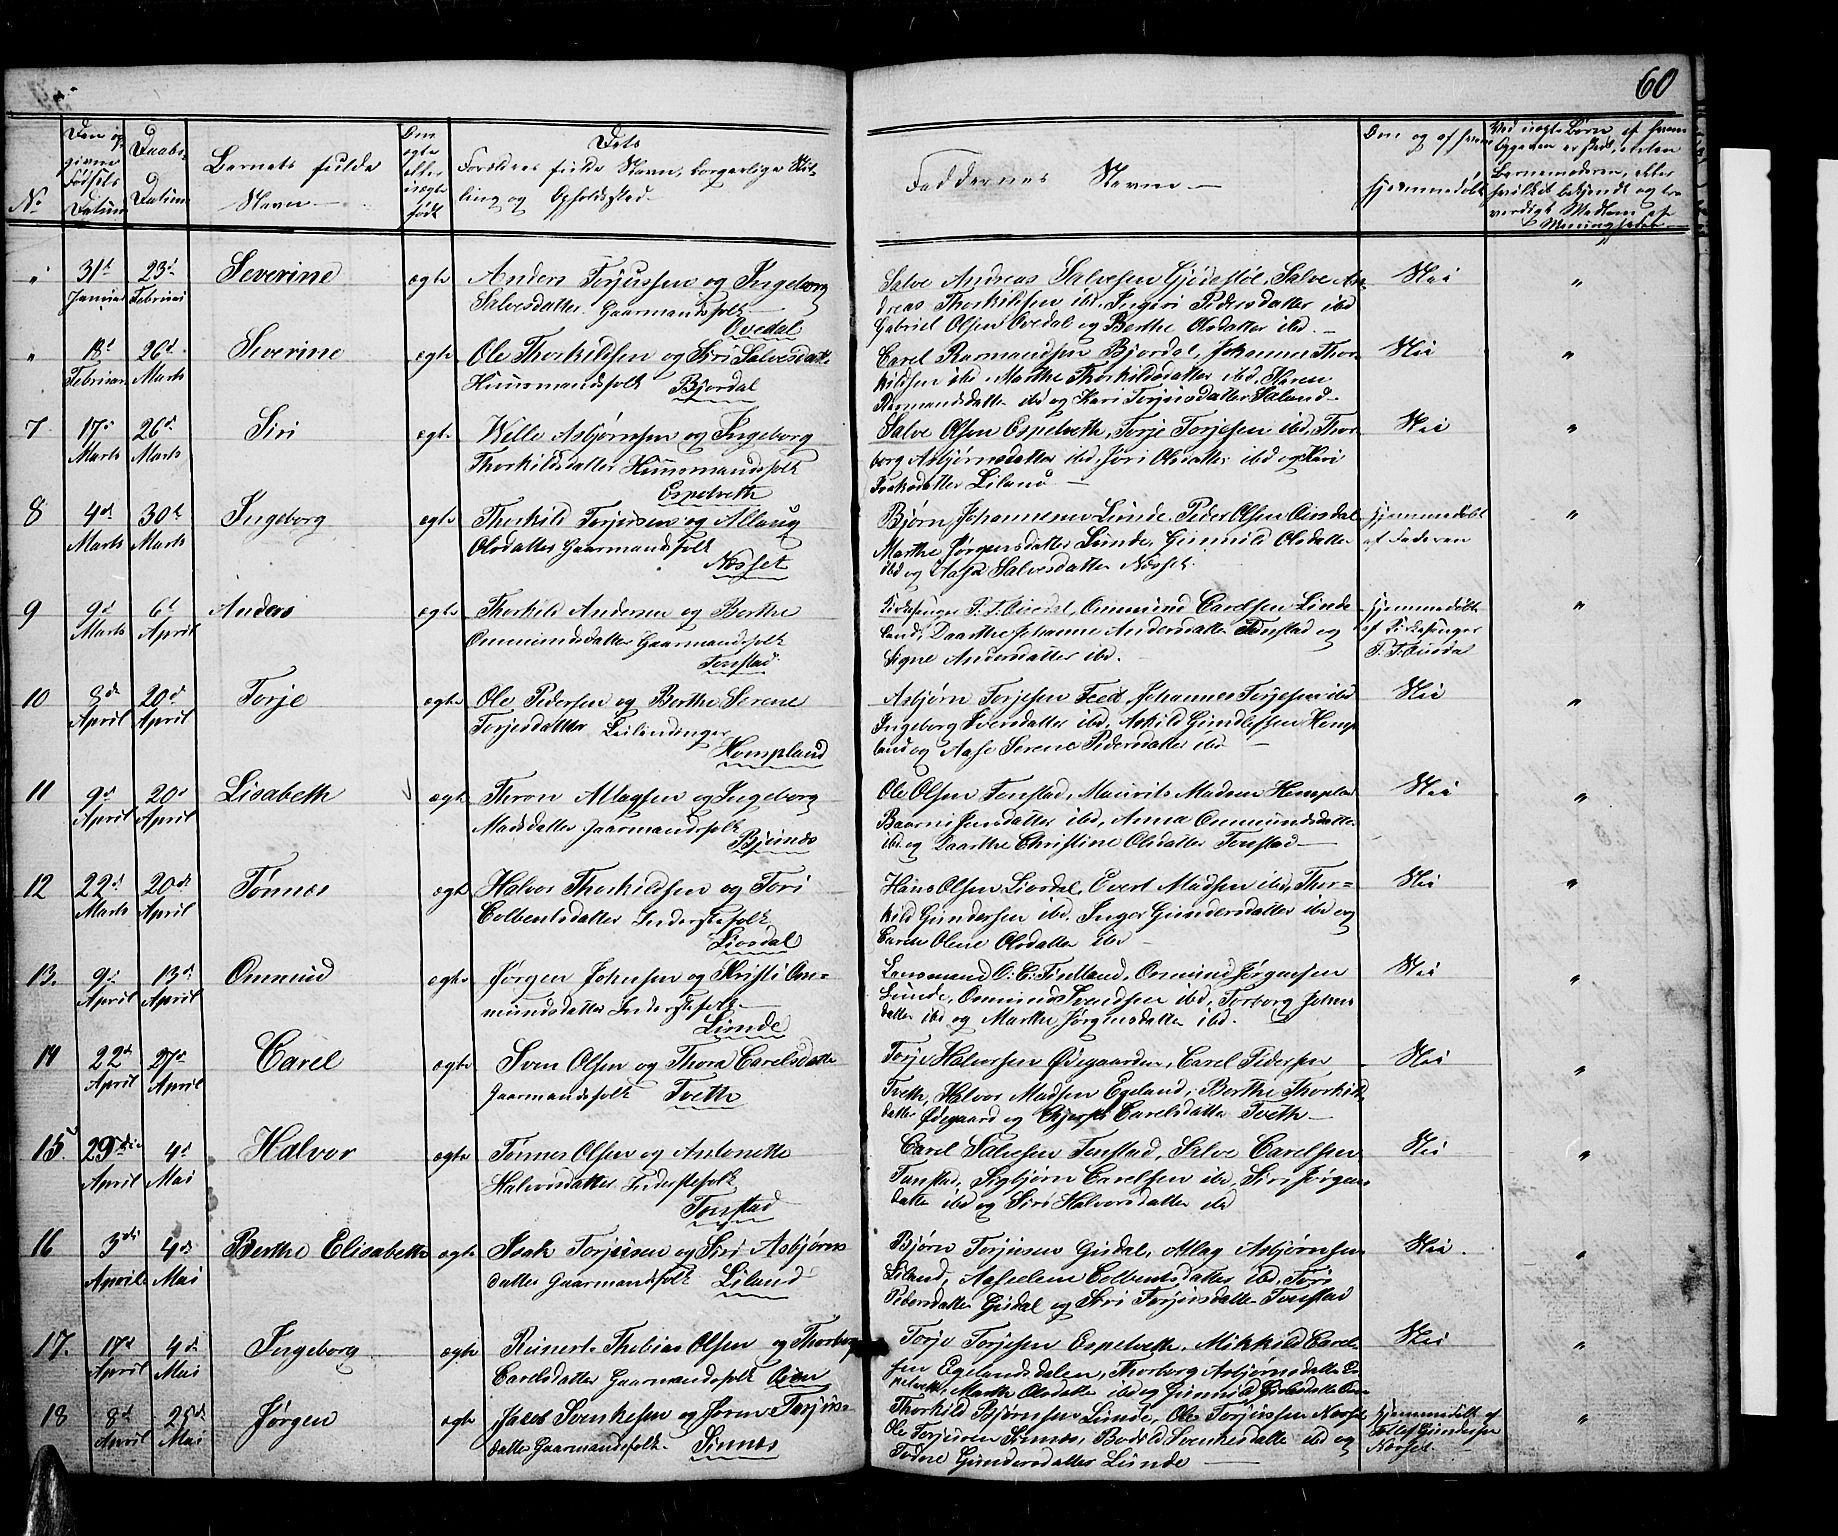 60
No
Den og
givne
Fødsels
Datum
Daabs
Datum
Barnets fulde
Navn
Om
ægte
eller
uægte
født
Dets
Forældres fulde Navn, borgerlige Stil-
ling og Opholdssted
Faddernes Navne
Om og af hvem
hjemmedøbt
"
31t
Januar
23d
Februar
Severine
ægte
Anders Torjussen og Ingeborg
Salvesdatter Gaarmandsfolk
Ovedal
Salve Andreas Salvesen Gjedestøl, Salve An-
dreas Thorkildsen ibd, Ingeri Pedersdatter ibd
Gabriel Olsen Ovedal og Berthe Olsdatter ibd.
Nei
"
"
18d
Februar
26d
Marts
Severine
ægte
Ole Thorkildsen og Siri Salvesdatt.
Huusmandsfolk Bjordal
Carel Rasmundsen Bjordal, Johannes Thor-
kildsen ibd, Marthe Thorkildsdatter ibd, Karen
Rasmundsdatter ibd og Kari Torjusdatter Skland
Nei
"
7
17d
Marts
26d
Marts
Siri
ægte
Wille Asbjørnsen og Ingeborg
Thorkildsdatter Huusmandsfolk
Espetveth
Salve Olsen Espetveth, Torje Torjesen ibd, Thor-
borg Asbjørnsdatter ibd, Jori Olsdatter ibd og Kari
Isaksdatter Liland
Nei
"
8
4d
Marts
30d
Marts
Ingeborg
ægte
Thorkild Torjusen og Allaug
Olsdatter Gaarmandsfolk
Næsset
Bjørn Johannesen Lunde, Peder Olsen Ousdal
Marthe Jørgensdatter Lunde, Gunnild Olsdatter
ibd og Aase Salvesdatter Næsset
Hjemmedøbt
af Faderen
"
9
9d
Marts
6d
April
Anders
ægte
Thorkild Andersen og Berthe
Ommundsdatter Gaarmandsfolk
Tonstad
Kirkesanger T. T. Ousdal, Ommund Carelsen Linde-
land, Daarthe Johanne Andersdatter Tonstad og
Signe Andersdatter ibd.
Hjemmedøbt
af Kirkesanger
T. T. Ousdal
"
10
8de
April
20d
April
Torje
ægte
Ole Pedersen og Berthe Serene
Torjesdatter Leilændinger
Hompland
Asbjørn Torjesen Feed, Johannes Torjesen ibd
Ingeborg Svensdatter ibd, Askild Gundlefsen Homp
land og Aase Serene Pedersdatter ibd
Nei
"
11
9d
April
20d
April
Lisabeth
ægte
Thron Atlagsen og Ingeborg
Madsdatter Gaarmandsfolk
Bjunes
Ole Olsen Tonstad, Maurits Madsen Homplan
Baarni Jensdatter ibd, Anna Ommundsdatter
ibd og Daarthe Christine Olsdatter Tonstad
Nei
"
12
22d
Marts
20d
April
Tønnes
ægte
Halvor Thorkildsen og Tori
Colbentsdatter Inderstefolk
Liosdal
Hans Olsen Liosdal, Evert Madsen ibd, Thor-
kild Gundersen ibd, Inger Gundersdatter ibd og
Caren Olene Olsdatter ibd
Nei
"
13.
9d
April
13d
April
Ommund
ægte
Jørgen Johnsen og Kristi Om-
mundsdatter Inderstefolk
Lunde
Lensmand O. C. Fintland, Ommund Jørgensen
Lunde, Ommund Svendsen ibd, Torborg Johns
datter ibd og Marthe Jørgensdatter ibd.
Nei
"
14
22d
April
27d
April
Carel
ægte
Sven Olsen og Thora Carelsdatter
Gaarmandsfolk Tveth
Torje Halvorsen Ødegaarden, Carel Pedersen
Tveth, Halvor Madsen Egeland, Berthe Thorkild
datter Ødegaard og Carelsdatter Tveth
Nei
"
15.
29de
April
4d
Mai
Halvor
ægte
Tønnes Olsen og Antonette
Halvorsdatter Inderstefolk
Tonstad
Carel Salvesen Tonstad, Salve Carelsen
Tonstad, Sigbjørn Carelsen ibd, Siri Jørgens
datter ibd og Siri Halvorsdatter ibd
Nei
"
16
3die
April
4de
Mai
Berthe Elisabeth
ægte
Isak Torjusen og Siri Asbjørns
datter Gaarmandsfolk Liland
Bjørn Torjusen Gusdal, Atlag Asbjørnsen
Liland, Colbentsdatter ibd, Tori
Pedersdatter Gusdal og Siri Torjusdatter Tonstad
Nei.
"
17.
17d
April
4d
Mai
Ingeborg
ægte
Reinert Thobias Olsen og Thorborg
Carelsdatter Gaarmandsfolk
Torje Torjesen Espetveth, Mikkild Carel-
sen Egelandsdalen, Thorborg Asbjørnsdatter Es-
petveth, Marthe Olsdatter ibd og Gunnild
Nei
"
18
8d
April
25d
Mai
Jørgen
ægte
Jacob Svenkesen og Joren Torjus-
datter Gaarmandsfolk Sinnes
Thorkild Bjørnsen Lunde, Ole Torjussen Næsset
Ole Torjusen Sinnes, Bodild Svenkesdatter ibd og
Todne Gundersdatter Lunde
Hjemmedøbt af
Tollef Gundersen
Næsset
"